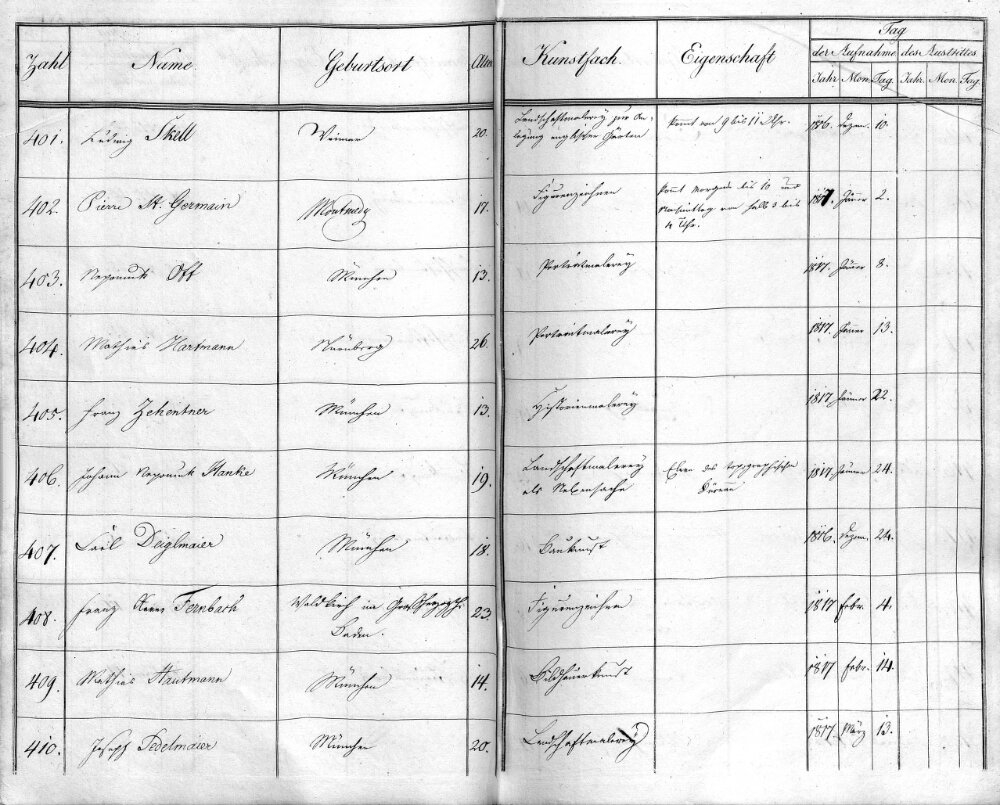 Zahl Name Geburtsort Alter Kunstfach. Eigenschaft Tag
der Aufnahme des Austrittes
Jahr Mon. Tag. Jahr. Mon. Tag
401. Ludwig Skell Weimar 20. Landschaftmalerey zur An-
legung englischer Gärten kommt von 9 bis 11 Uhr. 1816. Dezem. 10.
402. Pierre St. Germain Montmedy 17. Figurenzeichnen kommt morgens bis 10 und
Nachmittag von halb 3 bis
4 Uhr. 1817. Jäner 2.
403. Nepomuk Ott München 13. Porträtmalerey 1817. Jäner 8.
404. Mathias Hartmann Nürnberg 26. Portraitmalerey 1817. Jäner 13.
405. Franz Zehentner München 13. Historienmalerey 1817 Jänner 22.
406. Johann Nepomuk Hanke München 19. Landschaftmalerey
als Nebensache Eleve des topographischen
Büreau 1817 Jänner 24.
407. Carl Deiglmaier München 18. Baukunst 1816. Dezem. 24.
408. Franz Xaver Fernbach Waldkirch im Großherzogth.
Baden. 23. Figurenzeichnen 1817 Febr. 4.
409. Mathias Hautmann München 14. Bildhauerkunst 1817 Febr. 14.
410. Joseph Sedelmaier München 20. Landschaftmalerey 1817. März 13.